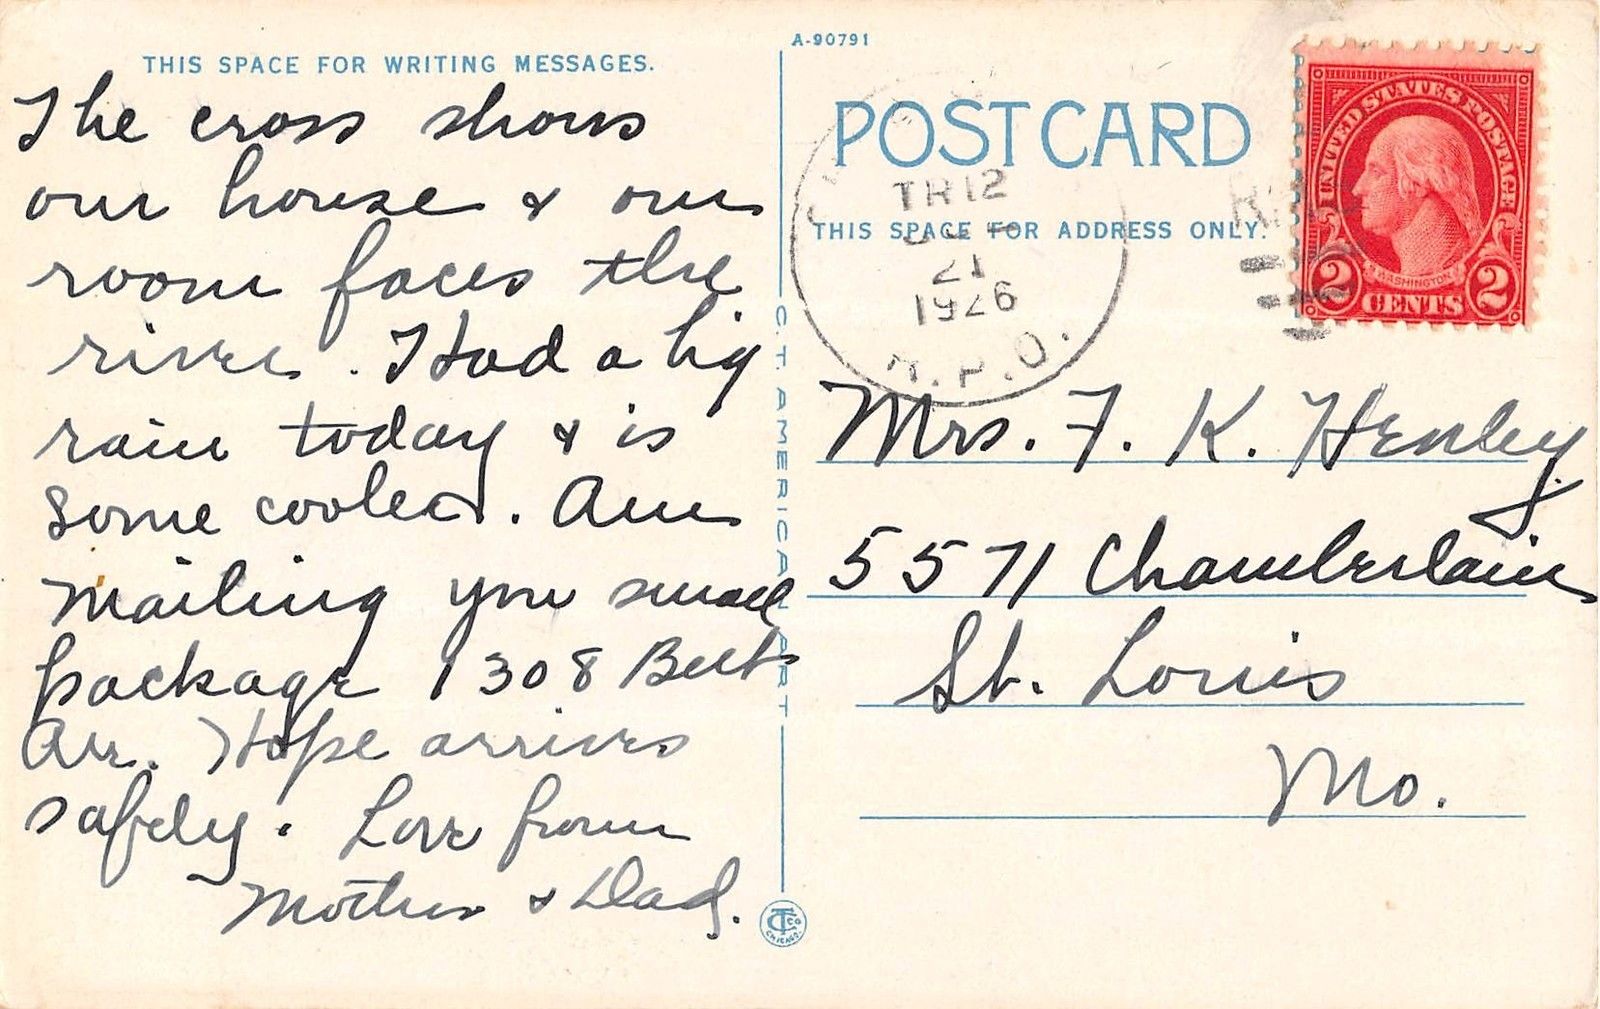 A-90791
THIS SPACE FOR WRITING MESSAGES.
The cross shows
our house & our
room faces the
river. Had a big
rain today & is
some cooler. Am
mailing you small
package 1308 Belt
Ave. Hope arrives
safely. Love from
Mother & Dad.
C.T. AMERICAN ART
POST CARD
THIS SPACE FOR ADDRESS ONLY.
TR 12
21
1926
R.P.O.
UNITED STATES POSTAGE
WASHINGTON
2 CENTS 2
Mrs. F. K. Henley
5571 Chamberlain
St. Louis
Mo.
CTCo
CHICAGO.